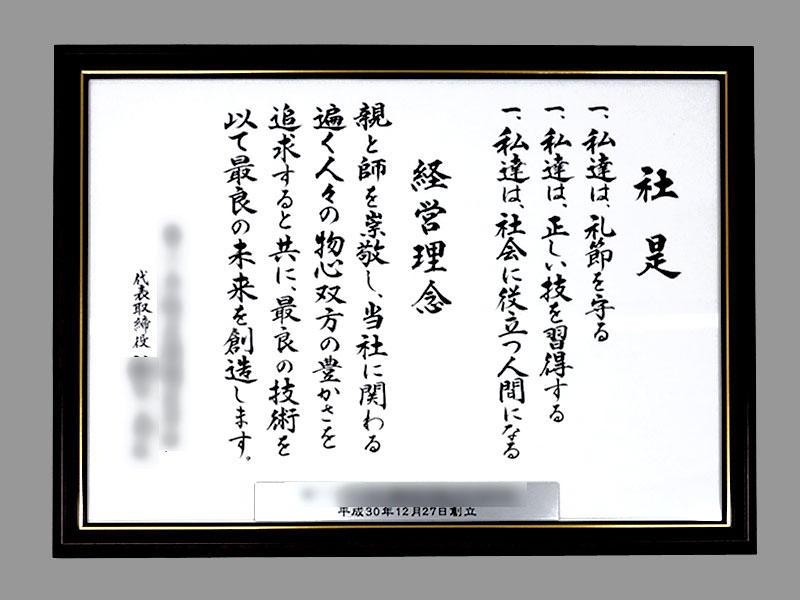 社是
一、私達は、礼節を守る
一、私達は、正しい技を習得する
一、私達は、社会に役立つ人間になる
経営理念
親と師を崇敬し、当社に関わる
遍く人々の物心双方の豊かさを
追求すると共に、最良の技術を
以て最良の未来を創造します。
代表取締役
平成30年12月27日創立